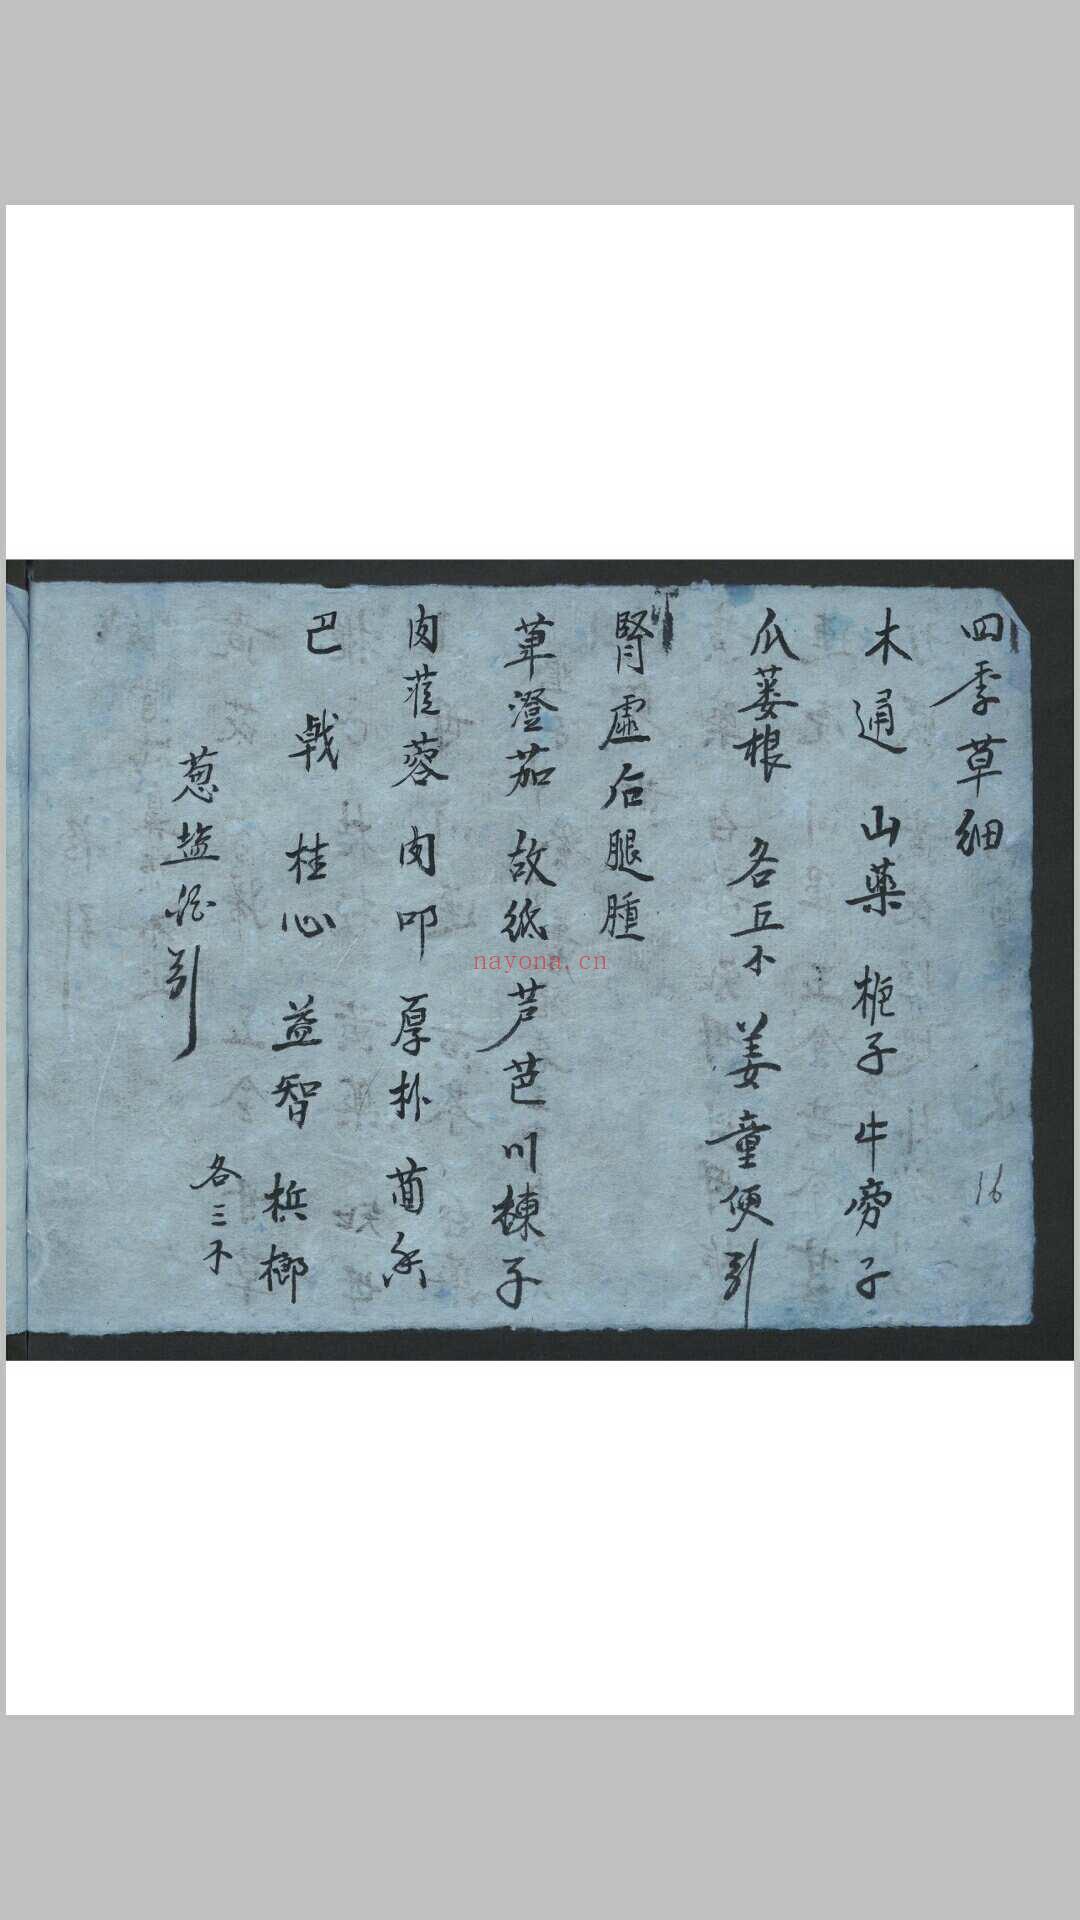 四季草細
木通 山藥 梔子 牛旁子
瓜蒌根 各五小 姜童便引
腎虛后腿腫
蓽澄茄 故紙 芦芭 川楝子
肉蓯蓉 肉叩 厚朴 茴香
巴戟 桂心 益智 梹榔
各三小
葱盐酒引
16
nayona.cn